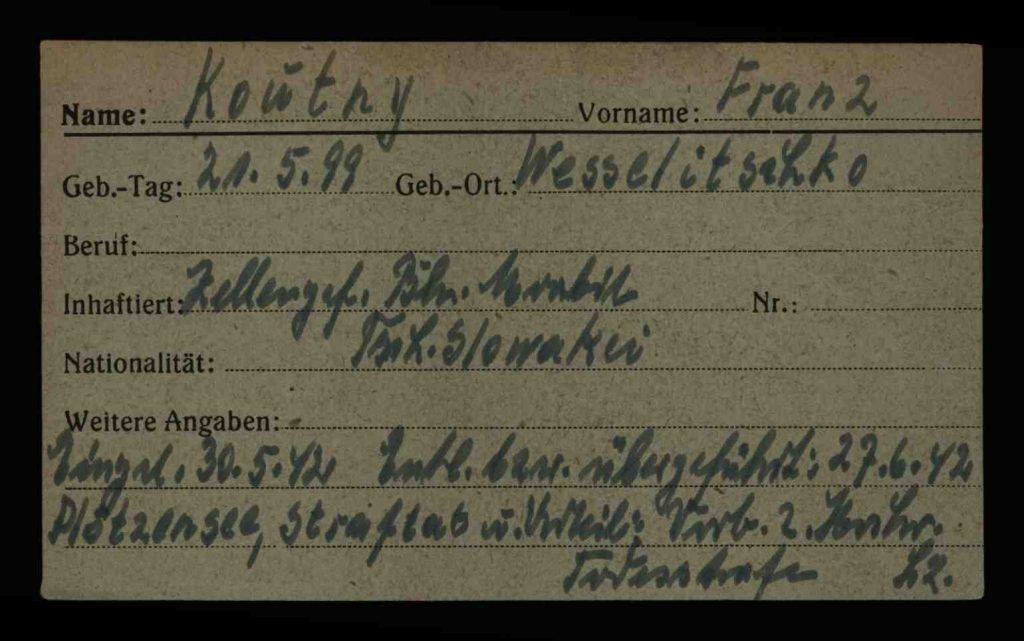 Name: Koutny Vorname: Franz
Geb.-Tag: 21.5.99 Geb.-Ort.: Wesselitschko
Beruf:
Inhaftiert: Zellengef. Bln. Moabit Nr.:
Nationalität: Tsch.Slowakei
Weitere Angaben:
Eingel. 30.5.42 Entl. bzw. übergeführt: 27.6.42
Plötzensee, Straftat u. Urteil: Vorb. z. Hochv.
Todesstrafe